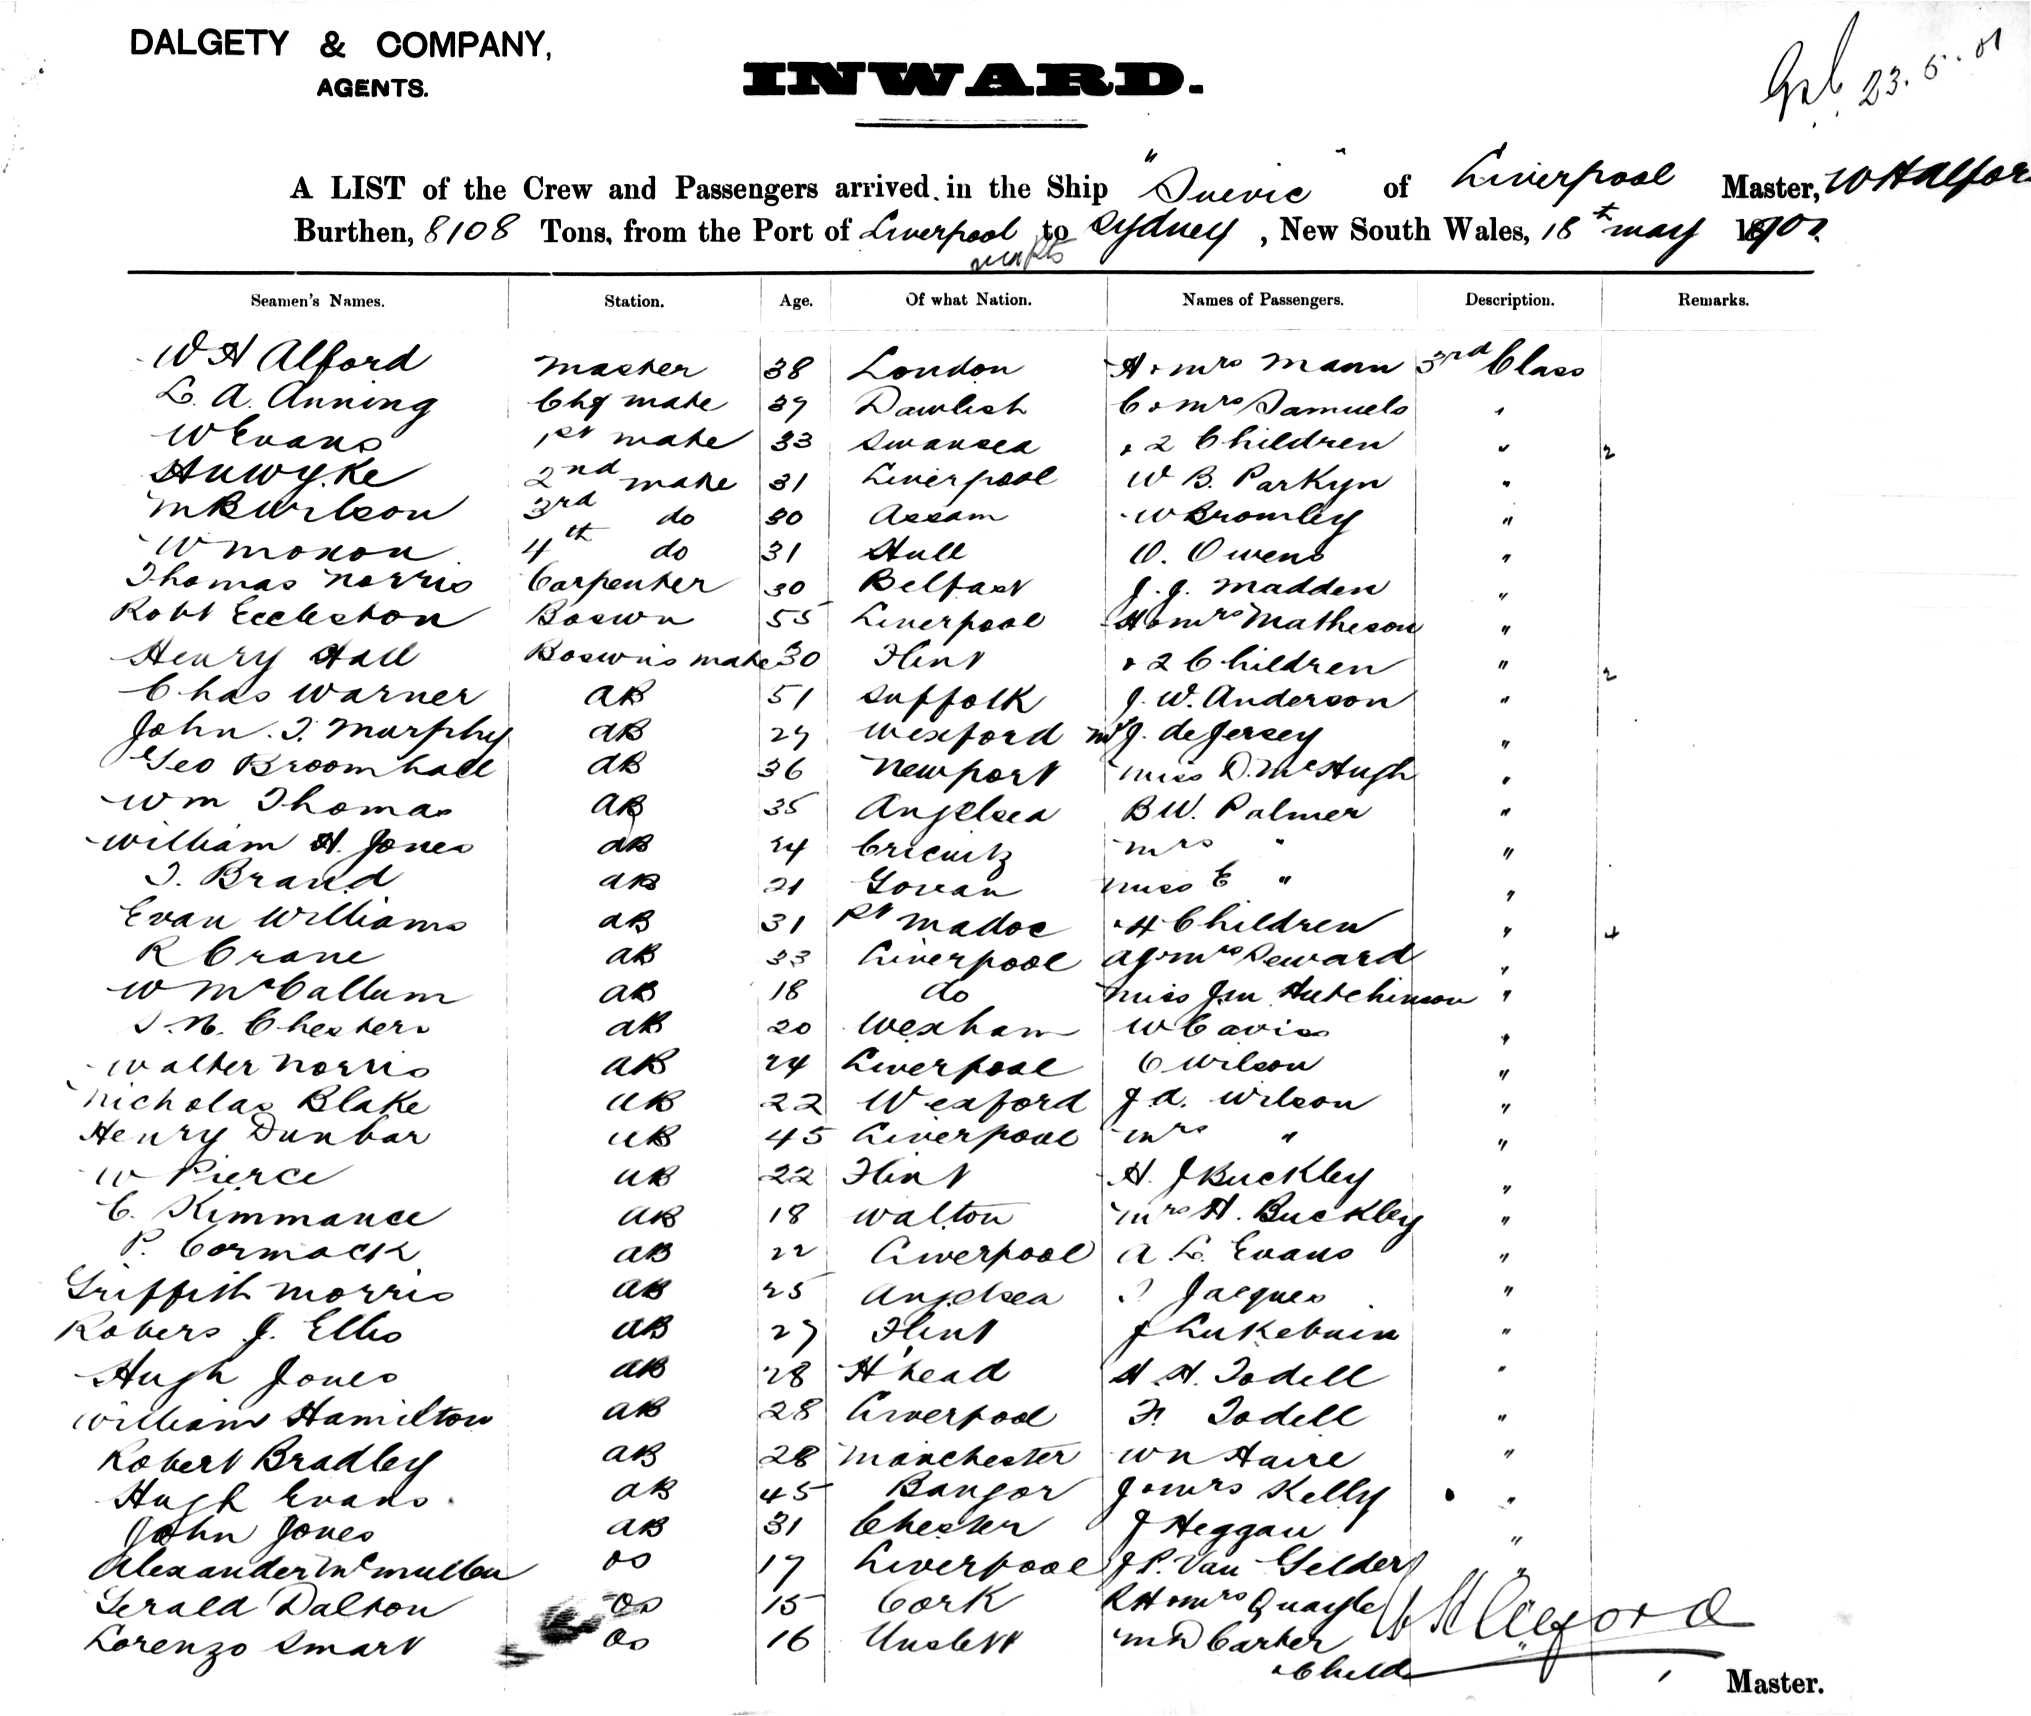 DALGETY & COMPANY,
AGENTS.
INWARD.
23.5.01
A LIST of the Crew and Passengers arrived in the Ship "Suevic" of Liverpool Master, W H Alford
Burthen, 8108 Tons, from the Port of Liverpool to Sydney, New South Wales, 18th May 1901
Seamen's Names. Station. Age. Of what Nation. Names of Passengers. Description. Remarks.
W H Alford Master 38 London H & Mrs Mann 3rd Class
L. A. Anning Chf Mate 39 Dawlish C & Mrs Samuels "
W Evans 1st Mate 33 Swansea & 2 Children " 2
H Wyke 2nd Mate 31 Liverpool W B. Parkyn "
M B Wilson 3rd do 30 Assam W Bromley "
W Moxon 4th do 31 Hull O. Owens "
Thomas Norris Carpenter 30 Belfast J. J. Madden "
Robt Eccleston Boswn 55 Liverpool H & Mrs Matheson "
Henry Hall Boswns Mate 30 Flint & 2 Children " 2
Chas Warner AB 51 Suffolk J. W. Anderson "
John. T. Murphy AB 29 Wexford J. de Jersey "
Geo Broomhall AB 36 Newport Miss D. McHugh "
Wm Thomas AB 35 Angelsea B W. Palmer "
William H. Jones AB 24 Mrs " "
T. Brand AB 21 Govan Miss E " "
Evan Williams AB 31 Pt Madoc & 4 Children " 4
R Crane AB 33 Liverpool A J & Mrs Seward "
W McCallum AB 18 do Miss J M Hutchinson "
T. N. Chesters AB 20 Wexham W Cavis "
Walter Norris AB 24 Liverpool C Wilson "
Nicholas Blake AB 22 Wexford J. A. Wilson "
Henry Dunbar AB 45 Liverpool Mrs " "
W Pierce AB 22 Flint H. J Buckley "
C. Kimmance AB 18 Walton Mrs H. Buckley "
P. Cormack AB 22 Liverpool A L. Evans "
Griffith Morris AB 25 Angelsea Jacques "
Robers J. Ellis AB 29 Flint J "
Hugh Jones AB 28 H'head H. H. Todell "
William Hamilton AB 28 Liverpool F. Todell "
Robert Bradley AB 28 Manchester W N Haire "
Hugh Evans AB 45 Bangor J & Mrs Kelly "
John Jones AB 31 Chester J Heggan "
Alexander McMullen OS 17 Liverpool J P. Van Gelder "
Gerald Dalton OS 15 Cork R H & Mrs Quayle
Lorenzo Smart OS 16 Carter "
& Child
W H Alford
Master.